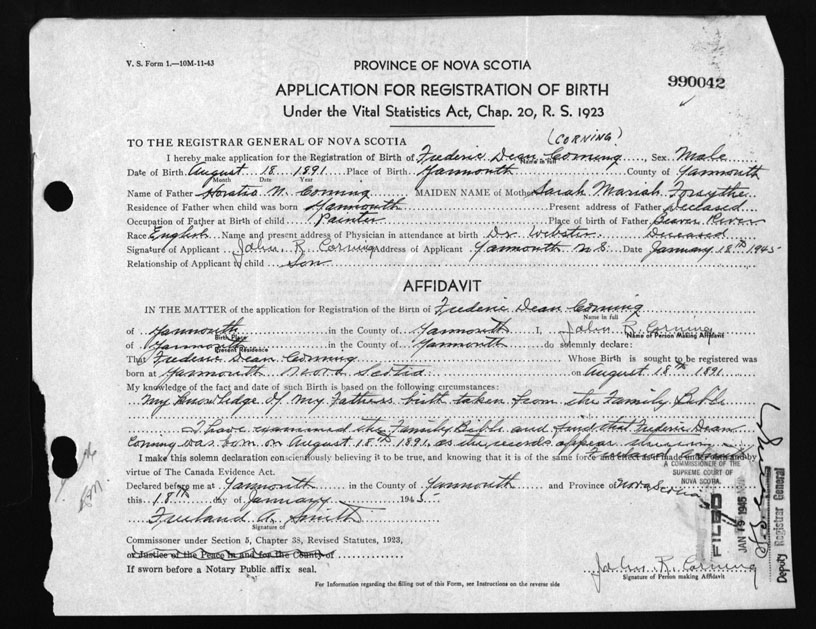 V. S. Form 1.—10M-11-43
PROVINCE OF NOVA SCOTIA
990042
APPLICATION FOR REGISTRATION OF BIRTH
Under the Vital Statistics Act, Chap. 20, R. S. 1923
(CORNING)
TO THE REGISTRAR GENERAL OF NOVA SCOTIA
I hereby make application for the Registration of Birth of Frederic Dean Corning, Sex Male
Name in full
Date of Birth August 18 1891 Place of Birth Yarmouth County of Yarmouth
Month Date Year
Name of Father Horatio N. Corning MAIDEN NAME of Mother Sarah Mariah Forsythe
Residence of Father when child was born Yarmouth Present address of Father Deceased
Occupation of Father at Birth of child Painter Place of birth of Father Beaver River
Race English Name and present address of Physician in attendance at birth Dr. Webster Deceased
Signature of Applicant John R. Corning Address of Applicant Yarmouth N.S. Date January 18th 1945
Relationship of Applicant to child Son
AFFIDAVIT
IN THE MATTER of the application for Registration of the Birth of Frederic Dean Corning
Name in full
of Yarmouth in the County of Yarmouth I, John R. Corning
Birth Place
Name of Person Making Affidavit
of Yarmouth in the County of Yarmouth do solemnly declare:
Present Residence
That Frederic Dean Corning Whose Birth is sought to be registered was
born at Yarmouth Nova Scotia on August 18th 1891
My knowledge of the fact and date of such Birth is based on the following circumstances:
My Knowledge of my Fathers birth taken from the Family Bible
I have examined the Family Bible and find that Frederic Dean
Corning was born on August 18th 1891, as the records appear
I make this solemn declaration conscientiously believing it to be true, and knowing that it is of the same force and effect as if made under oath and by
virtue of The Canada Evidence Act.
A COMMISSIONER OF THE
SUPREME COURT OF
NOVA SCOTIA
Declared before me at Yarmouth in the County of Yarmouth and Province of Nova Scotia
this 18th day of January 1945
Freeland A. Smith
Signature of
FILED
JAN 19 1945
Deputy Registrar General
Commissioner under Section 5, Chapter 38, Revised Statutes, 1923,
or Justice of the Peace in and for the County of
If sworn before a Notary Public affix seal.
John R. Corning
Signature of Person making Affidavit
For Information regarding the filling out of this Form, see Instructions on the reverse side